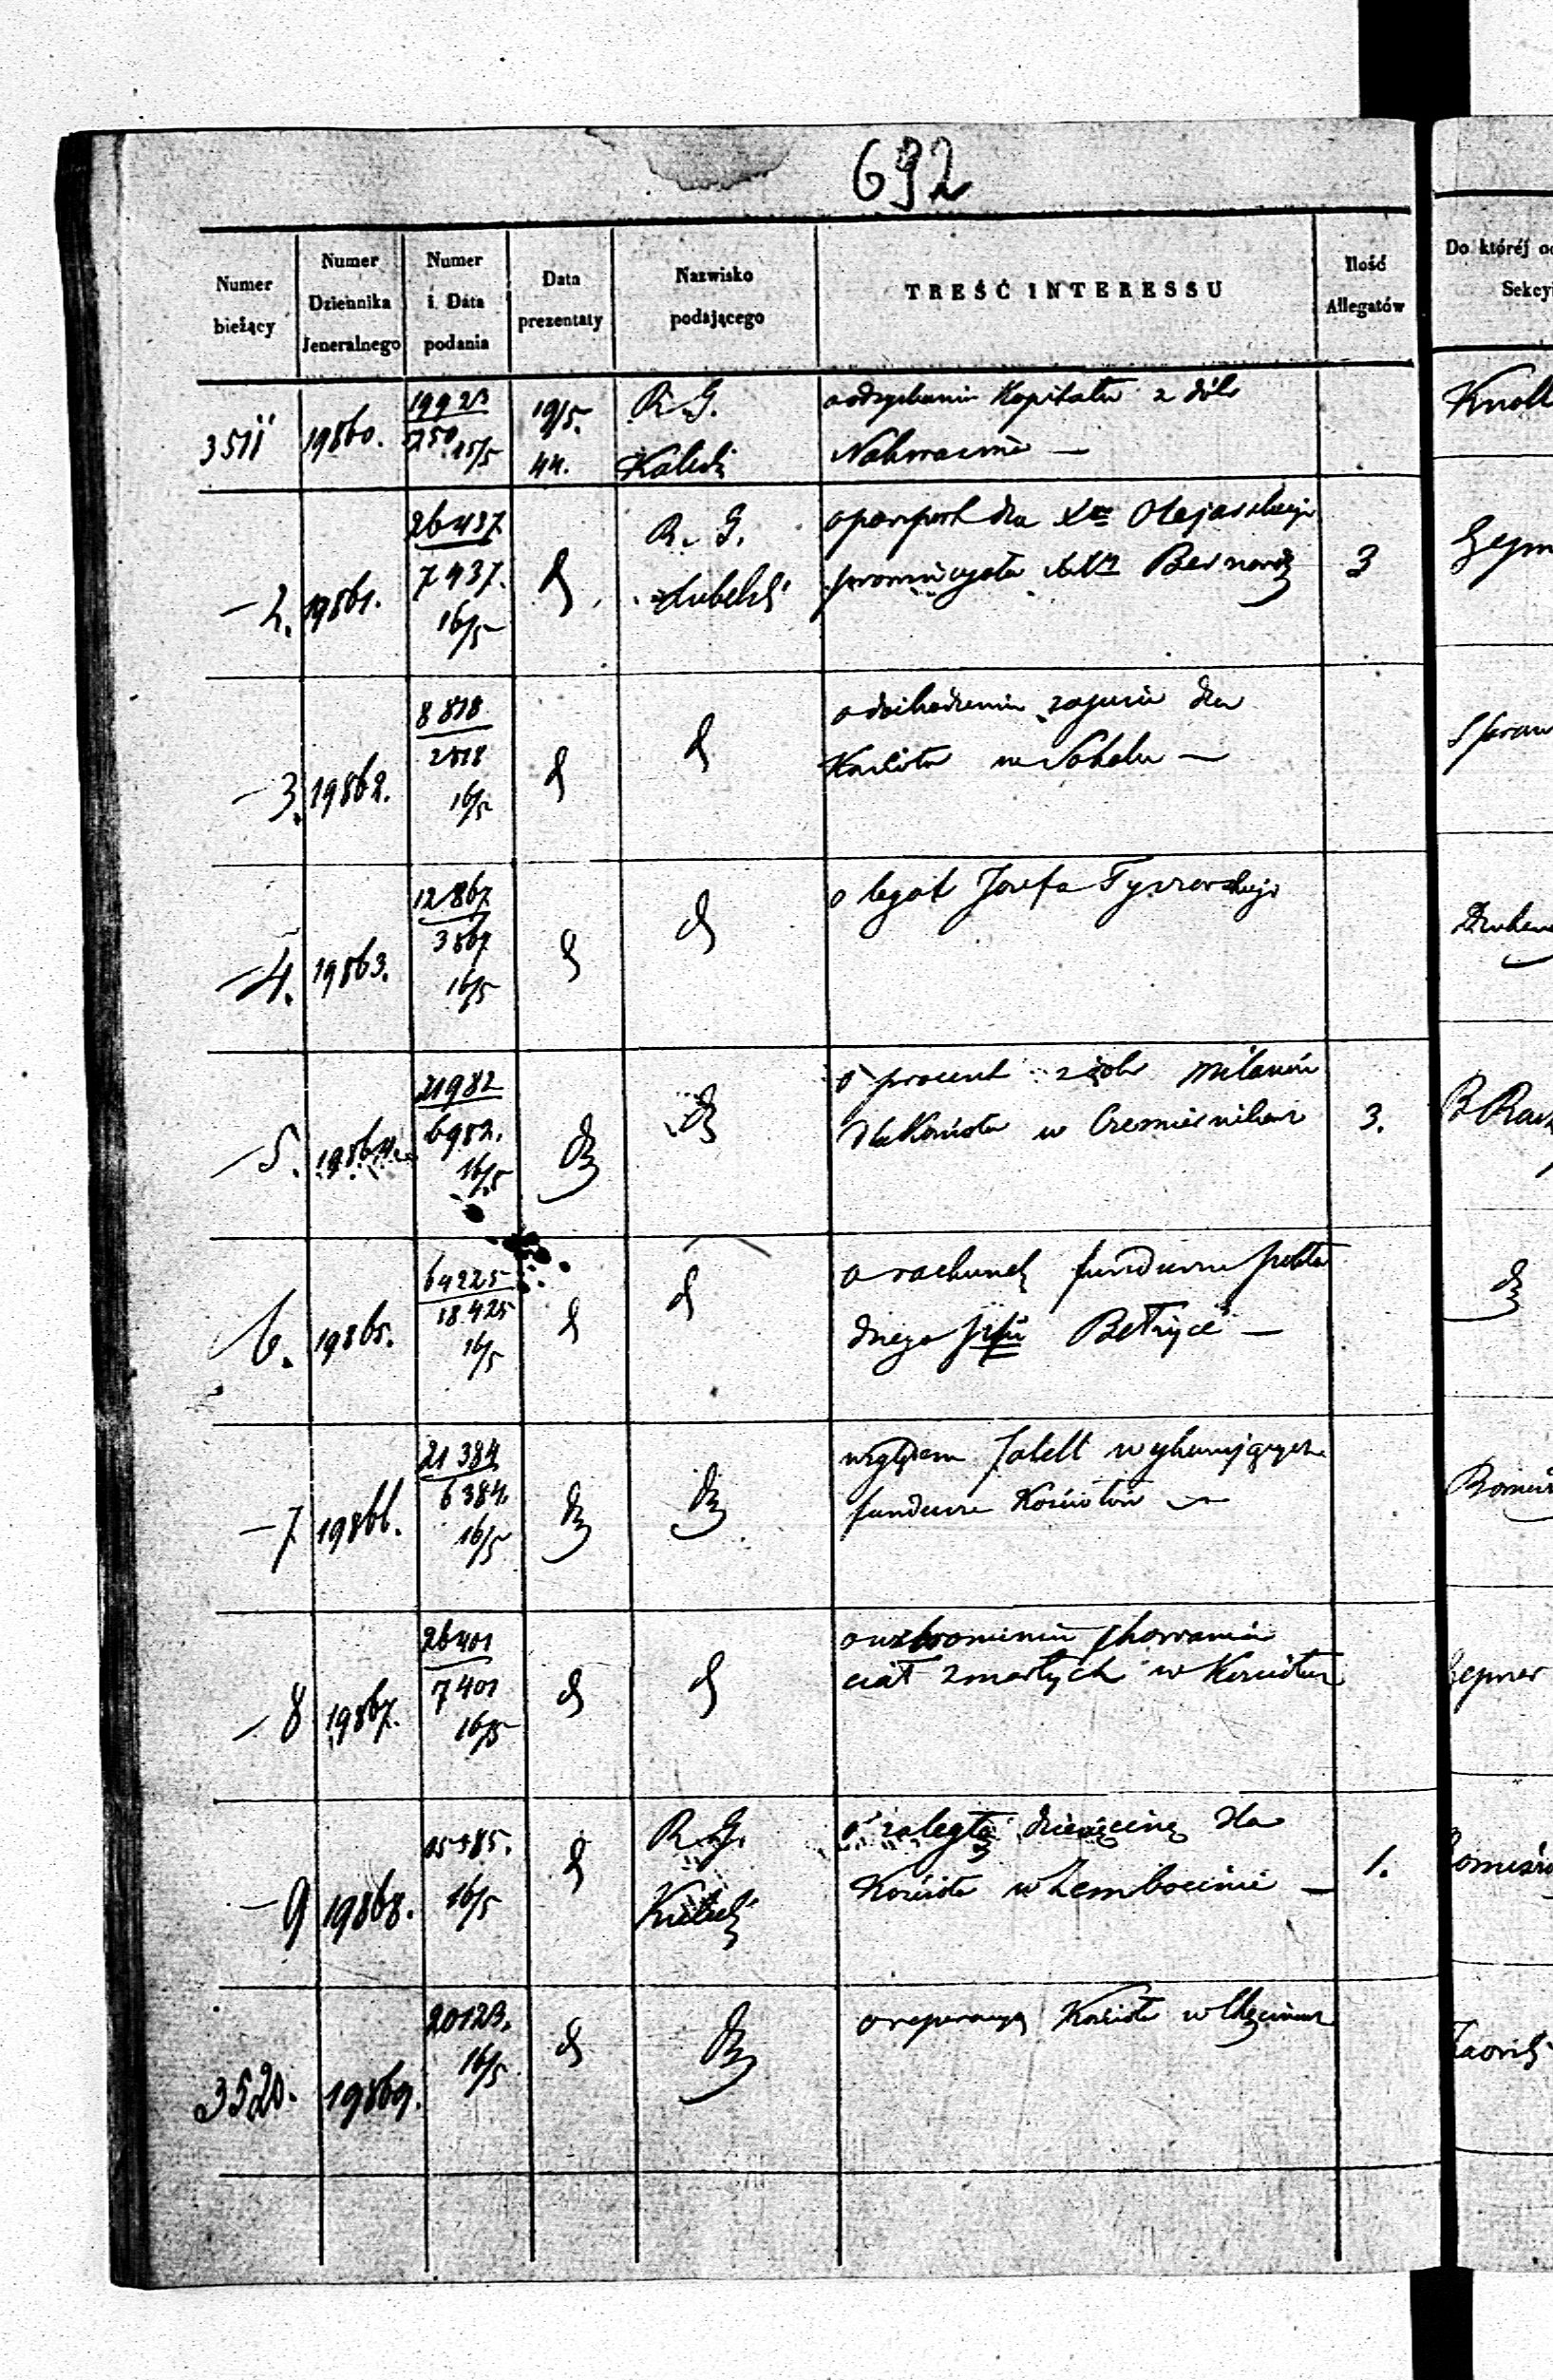 692
Numer bieżący
Numer Dziennika Jeneralnego
Numer i Data podania
Data prezentaty
Nazwisko podającego
TREŚĆ INTERESSU
Ilość Allegatów
Do któréj
Sekcyi
3511 19860. 19923 15/5 19/5 44. R. G. Kaliski o odzyskanie Kapitału z dóbr
Knoll
-2. 19861. 26437 7437. 16/5 d R. G. Lubelski o paszport dla Olejarskiego
Bernard 3
-3. 19862. 8818 2818 16/5 d d
Kościoła w Sokalu —
-4. 19863. 12867 3867 16/5 d d o legat Józefa Tyszowskiego
-5. 19864. 21982 6982. 16/5 d d o procent z dób Milanów
dla Kościoła w Czemiernikach 3.
6. 19865. 64225 18425 16/5 d d o rachunek funduszu
dnego Bełżyce —
d
-7 19866. 21384 6384. 16/5 d d względem Tabell wykazujących
fundusze Kościołów —
-8 19867. 26401 7401 16/5 d d o wzbronienie chowania
ciał zmarłych w Kościele
Hepner
-9 19868. 15585. 16/5 d R. G. Kielecki o zaległą dziesięcinę dla
Kościoła w Żembocinie — 1.
3520. 19869. 20123. 16/5 d d o reperacyą Kościoła w Chęcinach